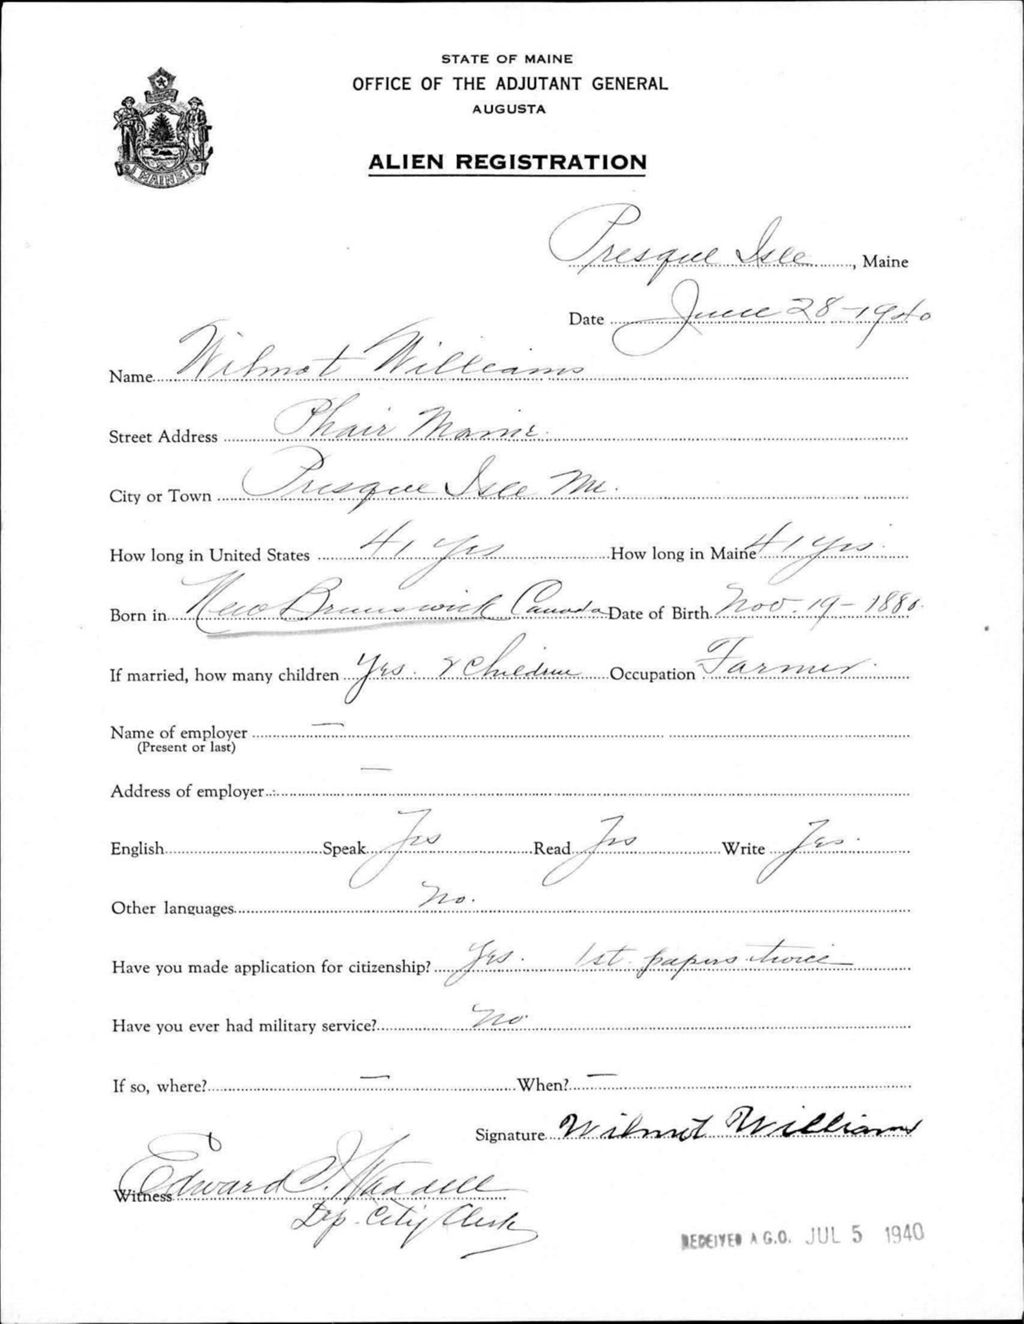 STATE OF MAINE
OFFICE OF THE ADJUTANT GENERAL
AUGUSTA
MAINE
ALIEN REGISTRATION
Presque Isle, Maine
Date June 28-1940
Name Wilmot Williams
Street Address Phair Maine.
City or Town Presque Isle Me.
How long in United States 41 Yrs How long in Maine 41 yrs.
Born in New Brunswick Canada Date of Birth Nov. 19-1880.
If married, how many children Yes. Children Occupation Farmer.
Name of employer —
(Present or last)
Address of employer —
English Speak Yes Read Yes Write Yes.
Other languages No.
Have you made application for citizenship? Yes. 1st papers twice
Have you ever had military service? No
If so, where? — When? —
Signature Wilmot Williams
Witness Edward J. Waddell
Dep. City Clerk
RECEIVED A.G.O. JUL 5 1940